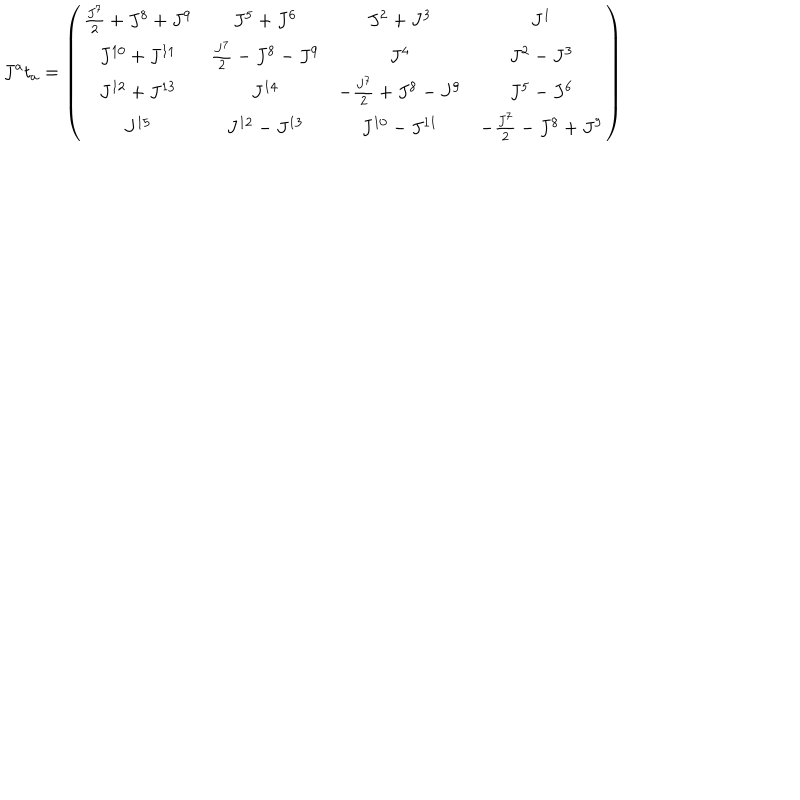 J^a t_a = \left( \begin{array}{cccc} \frac{J^7}{2} + J^8 + J^9 & J^5 + J^6 & J^2 + J^3 & J^1 \\ J^{10} + J^{11} & \frac{J^7}{2} - J^8 - J^9 & J^4 & J^2 - J^3 \\ J^{12} + J^{13} & J^{14} & -\frac{J^7}{2} + J^8 - J^9 & J^5 - J^6 \\ J^{15} & J^{12} - J^{13} & J^{10} - J^{11} & -\frac{J^7}{2} - J^8 + J^9 \end{array} \right)